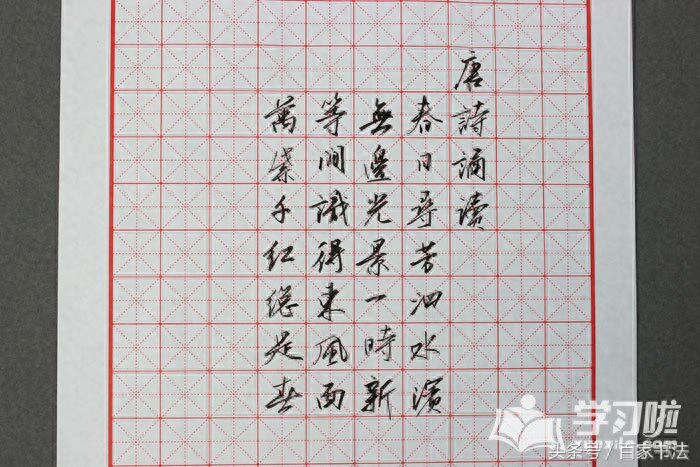 唐詩誦讀
春日尋芳泗水濱
無邊光景一時新
等閒識得東風面
萬紫千紅總是春
学习啦
头条号/百家书法